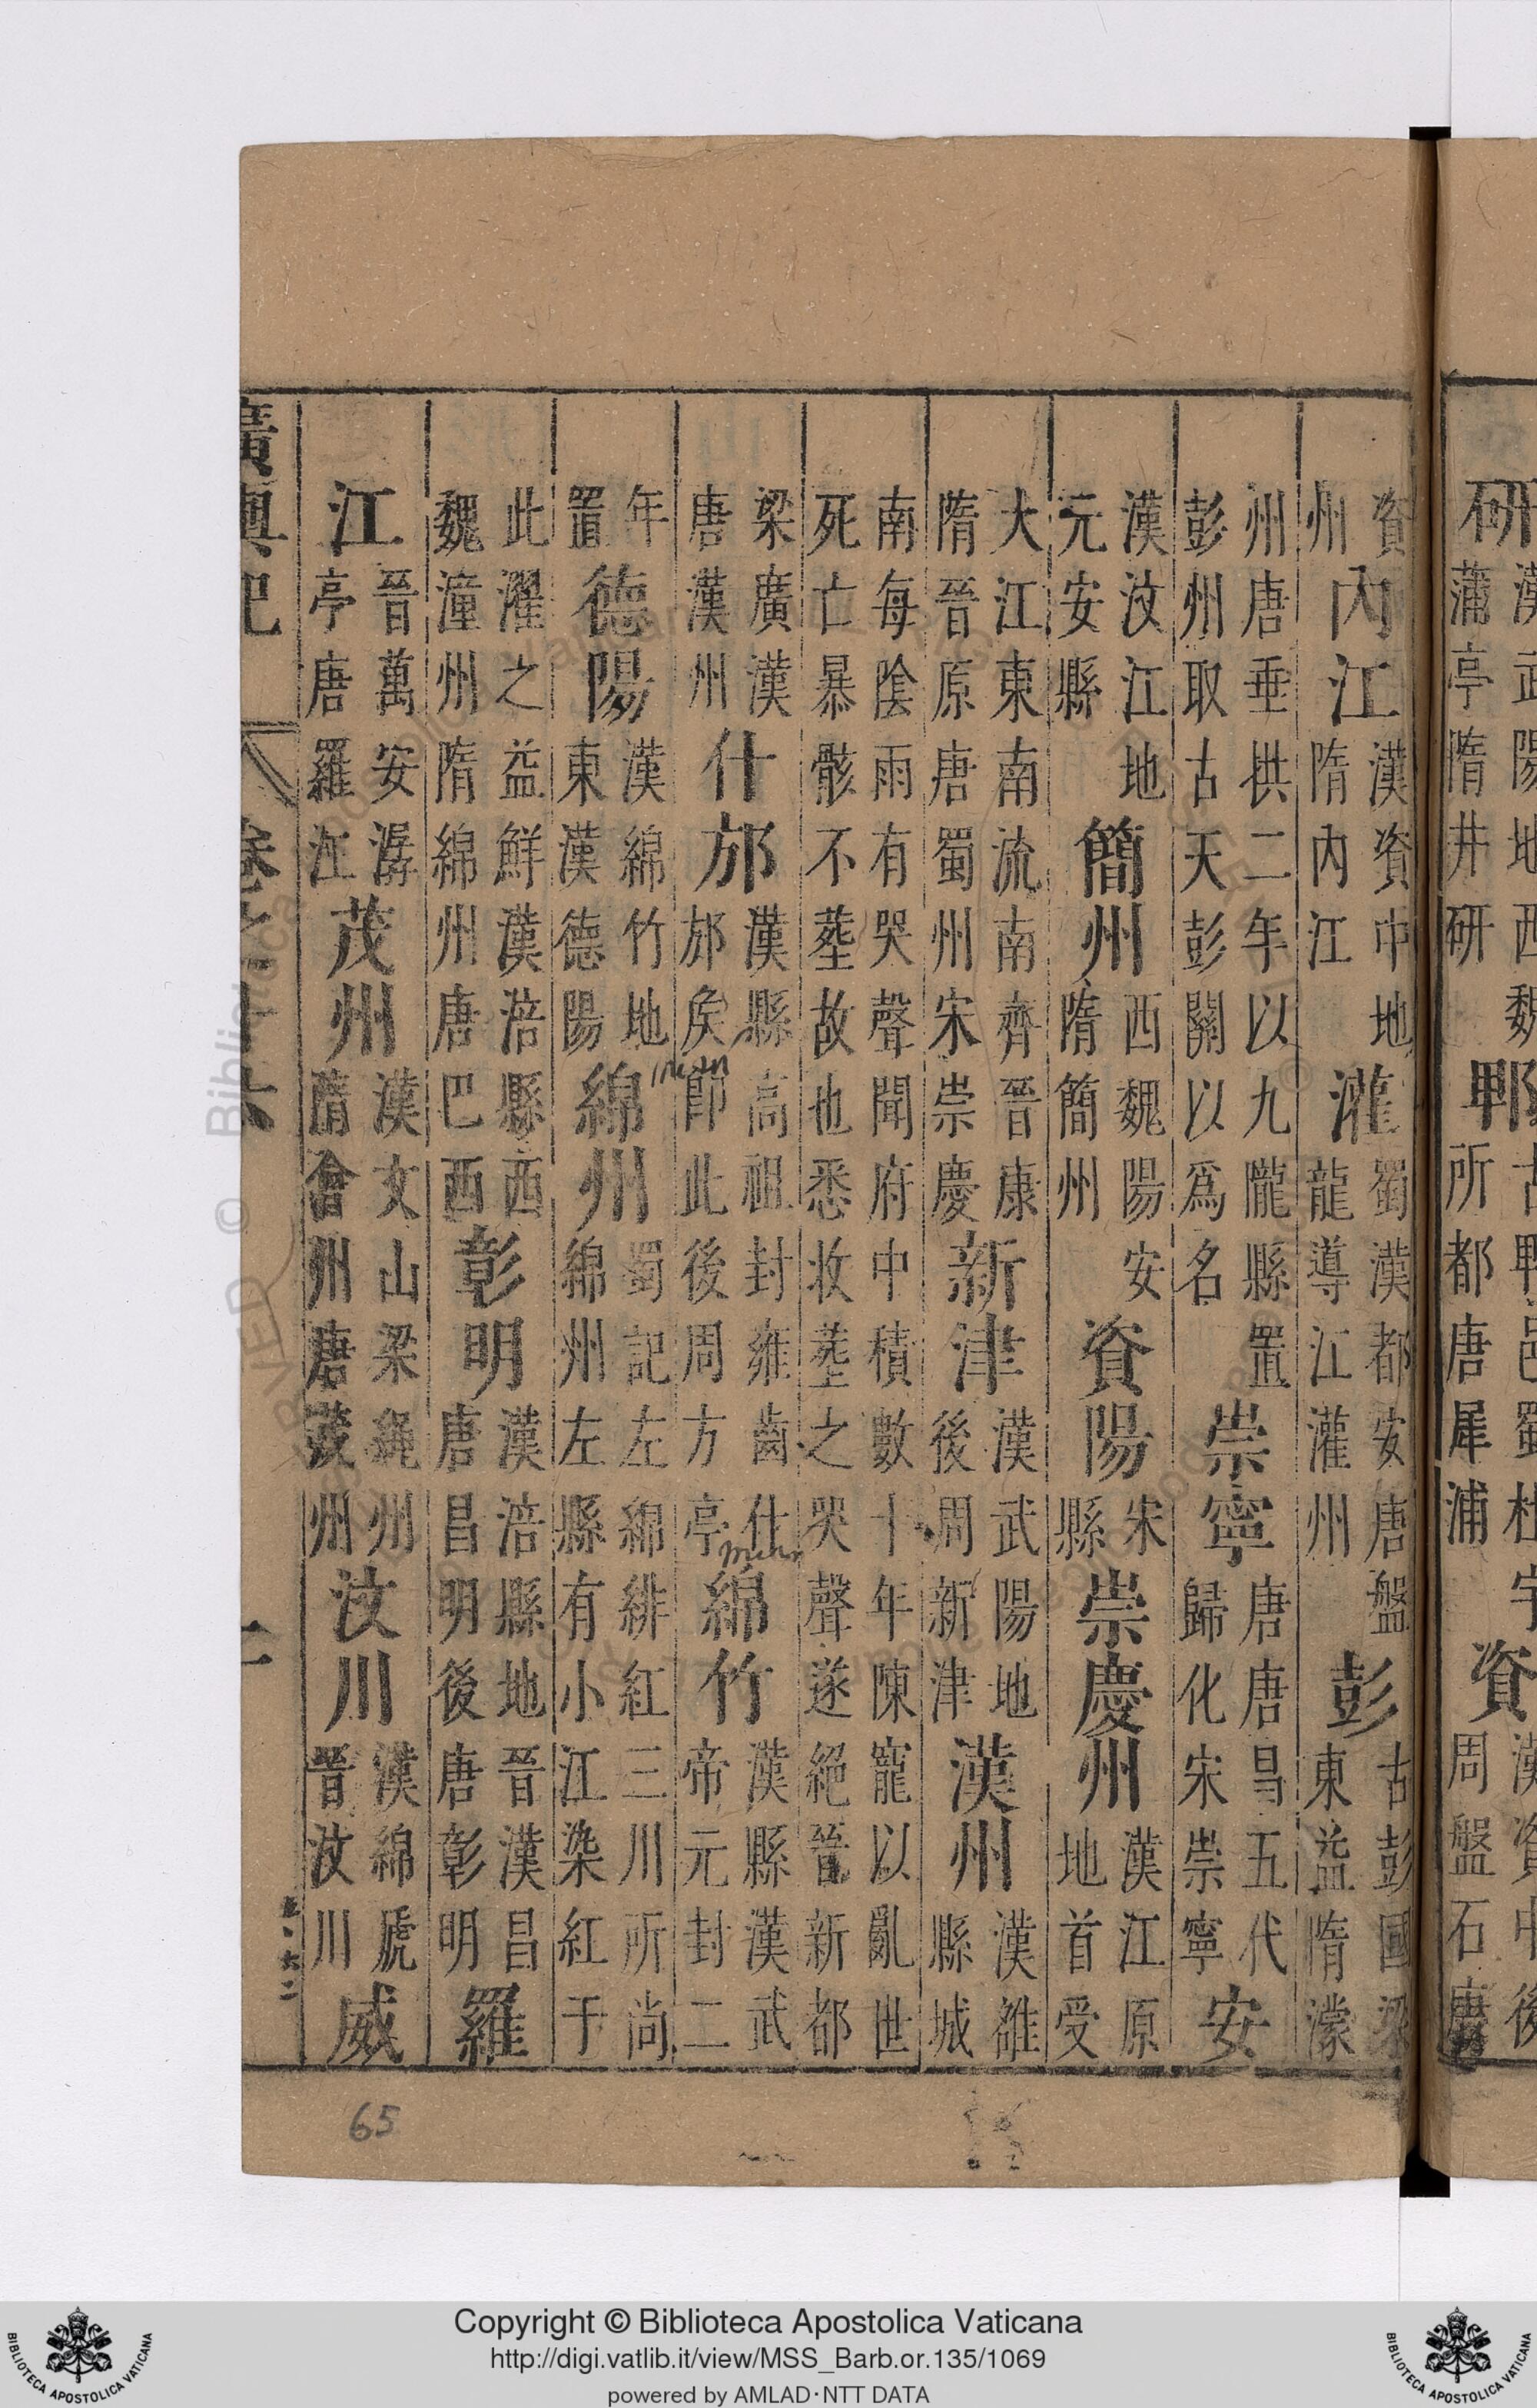 研漢武陽地西魏蒲亭隋井研郫古郫邑蜀杜宇所都唐犀浦資漢資中後周盤石唐
資州內江漢資中地隋內江灌蜀漢都安唐盤龍導江灌州彭古彭國梁東益隋濛
州唐垂拱二年以九隴縣置彭州取古天彭關以爲名崇寧唐唐昌五代歸化宋崇寧安
漢汶江地元安縣簡州西魏陽安隋簡州資陽朱縣崇慶州漢江原地首受
大江東南流南齊晉康隋晉原唐蜀州宋崇慶新津漢武陽地後周新津漢州漢雒縣城
南每陰雨有哭聲聞府中積數十年陳寵以亂世死亡暴骸不塟故也悉收塟之哭聲遂絕晉新都
梁廣漢唐漢州什邡漢縣高祖封雍齒什邡侯卽此後周方亭綿竹漢縣漢武帝元封二
年置德陽漢綿竹地東漢德陽綿州蜀記左綿緋紅三川所尚綿州左縣有小江染紅于
此濯之益鮮漢涪縣西魏潼州隋綿州唐巴西彰明漢涪縣地晉漢昌唐昌明後唐彰明羅
江晉萬安潺亭唐羅江茂州漢文山梁繩州隋會州唐茂州汶川漢綿虒晉汶川威
廣輿記 卷之十六 二
65
© Biblioteca Apostolica Vaticana
Copyright © Biblioteca Apostolica Vaticana
http://digi.vatlib.it/view/MSS_Barb.or.135/1069
powered by AMLAD·NTT DATA
BIBLIOTECA APOSTOLICA VATICANA
BIBLIOTECA APOSTOLICA VATICANA